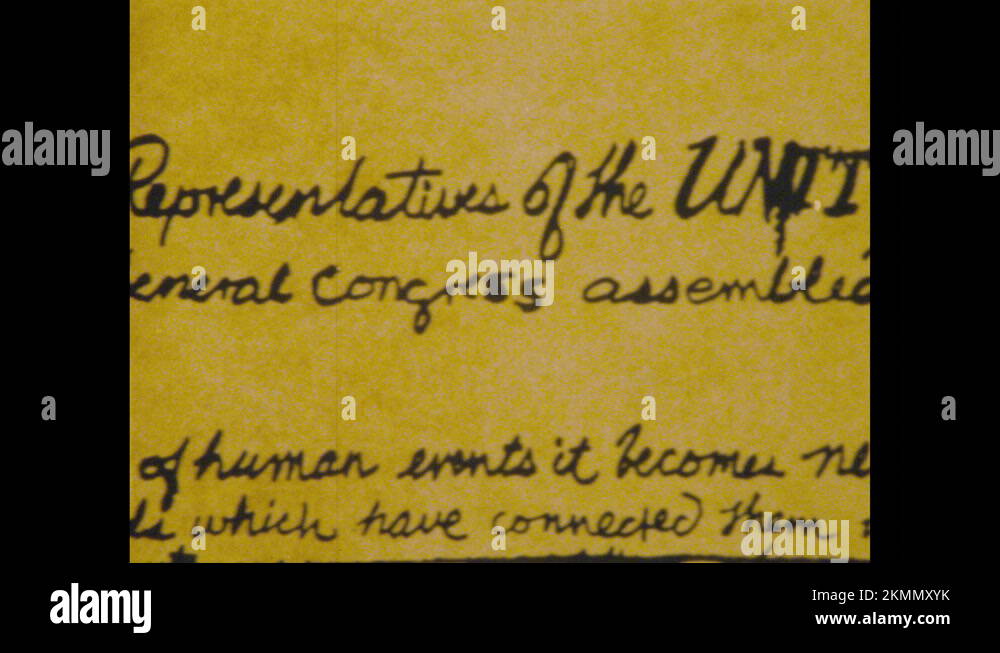 Representatives of the UNIT
eneral Congress assembled
of human events it becomes ne
ds which have connected them
a
a
a
a
alamy
a
a
a
a
a
a
a
alamy
a
alamy
alamy
Image ID: 2KMMXYK
www.alamy.com